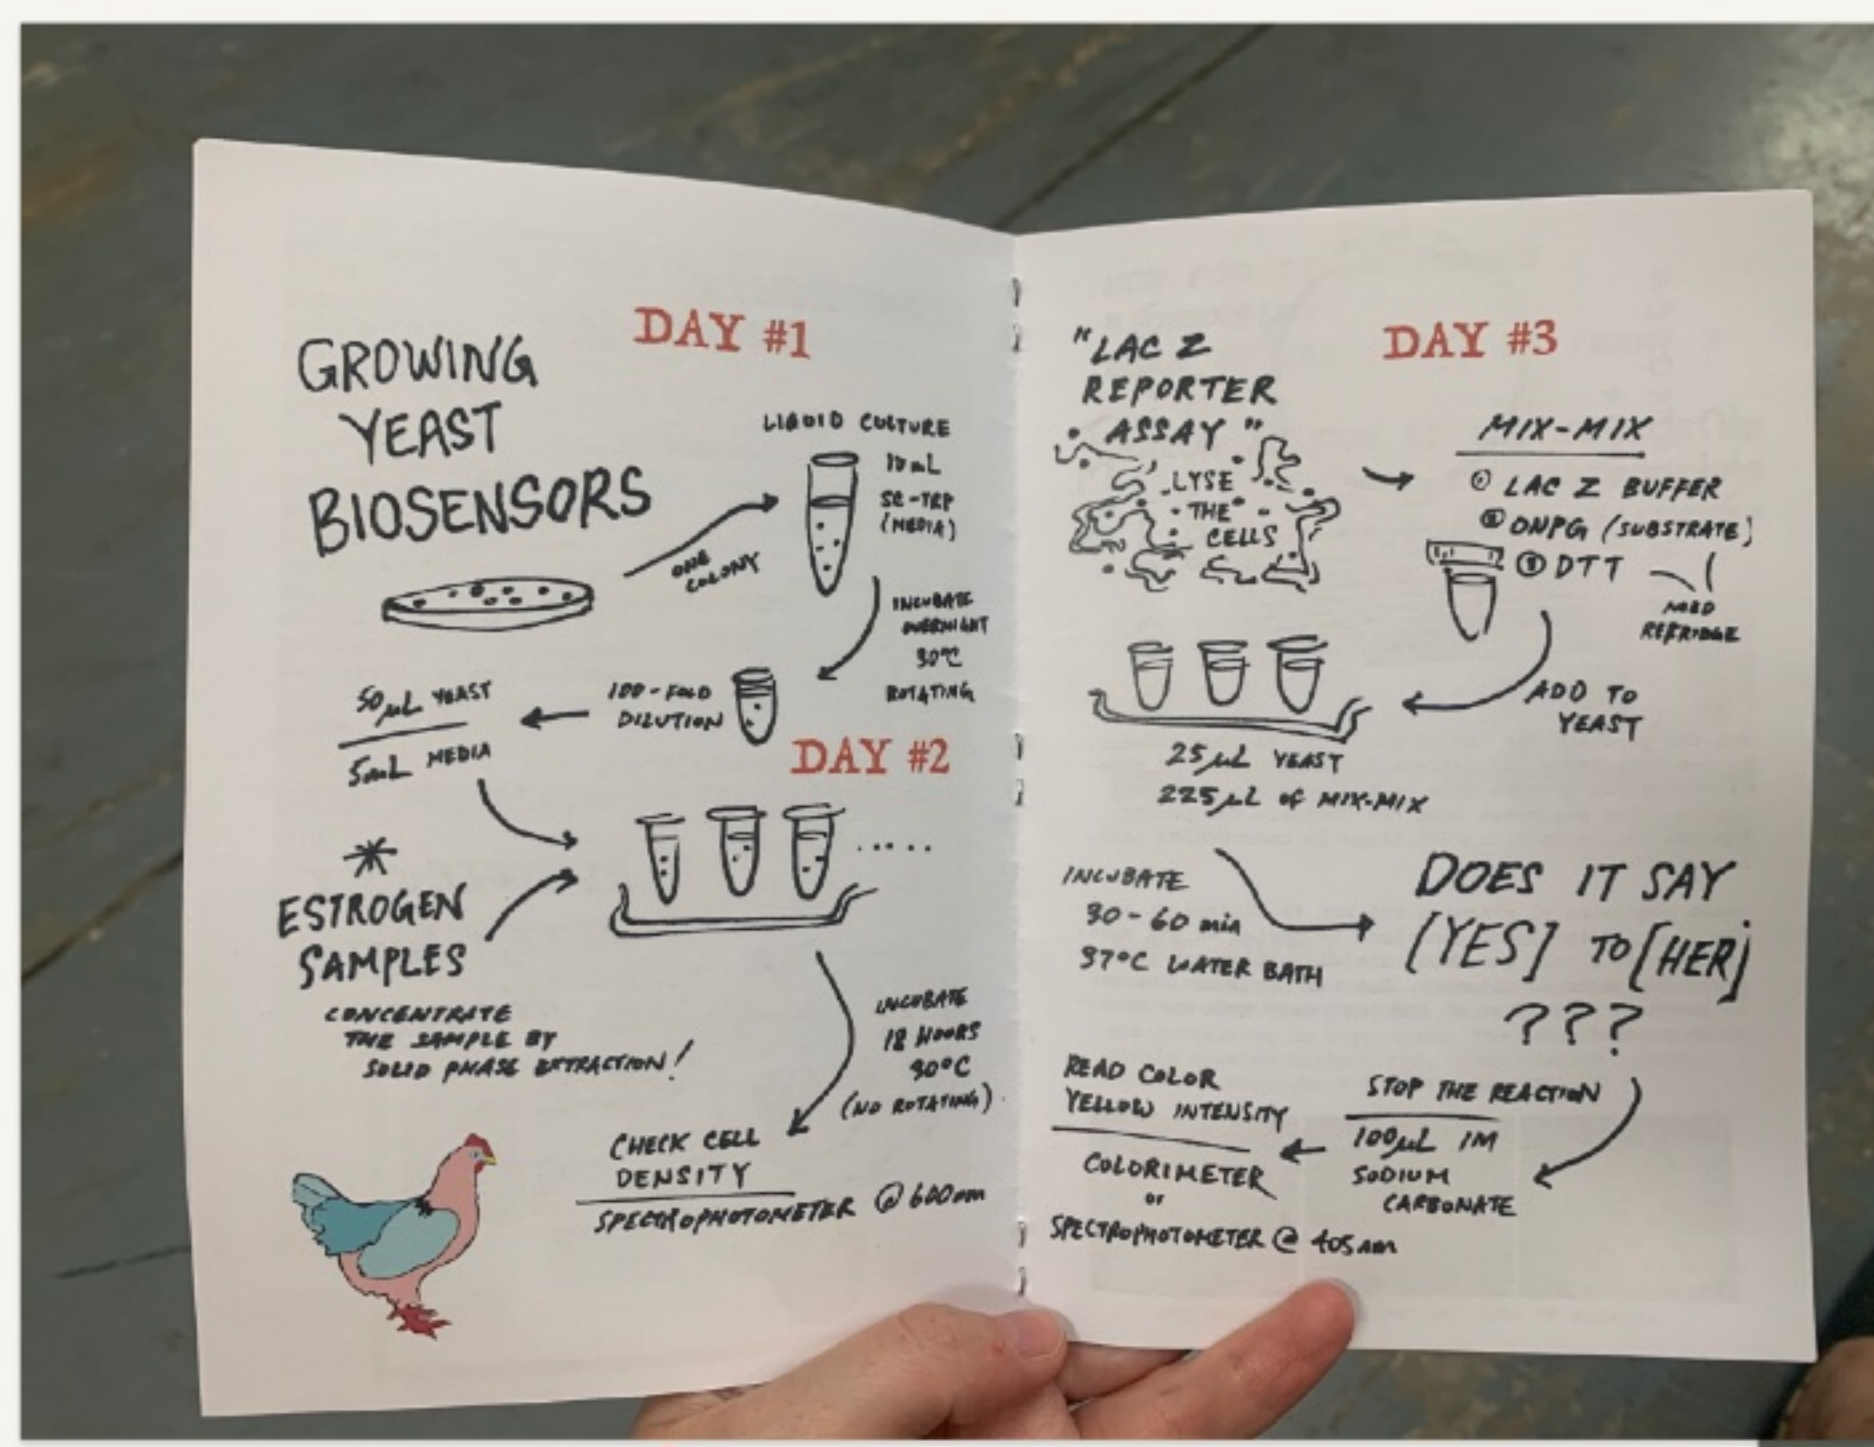 GROWING
YEAST
BIOSENSORS
DAY #1
ONE
COLONY
LIQUID CULTURE
10 mL
SC-TRP
(MEDIA)
INCUBATE
OVERNIGHT
30°C
ROTATING
100-FOLD
DILUTION
50 µL YEAST
5mL MEDIA
DAY #2
*
ESTROGEN
SAMPLES
CONCENTRATE
THE SAMPLE BY
SOLID PHASE EXTRACTION!
.....
INCUBATE
18 HOURS
30°C
(NO ROTATING)
CHECK CELL
DENSITY
SPECTROPHOTOMETER @ 600nm
DAY #3
"LAC Z
REPORTER
ASSAY"
LYSE
THE
CELLS
MIX-MIX
① LAC Z BUFFER
② ONPG (SUBSTRATE)
③ DTT
REFRIDGE
ADD TO
YEAST
25 µL YEAST
225 µL of MIX-MIX
INCUBATE
30-60 min
37°C WATER BATH
DOES IT SAY
[YES] TO [HER]
???
STOP THE REACTION
100µL 1M
SODIUM
CARBONATE
READ COLOR
YELLOW INTENSITY
COLORIMETER
or
SPECTROPHOTOMETER @ 405nm